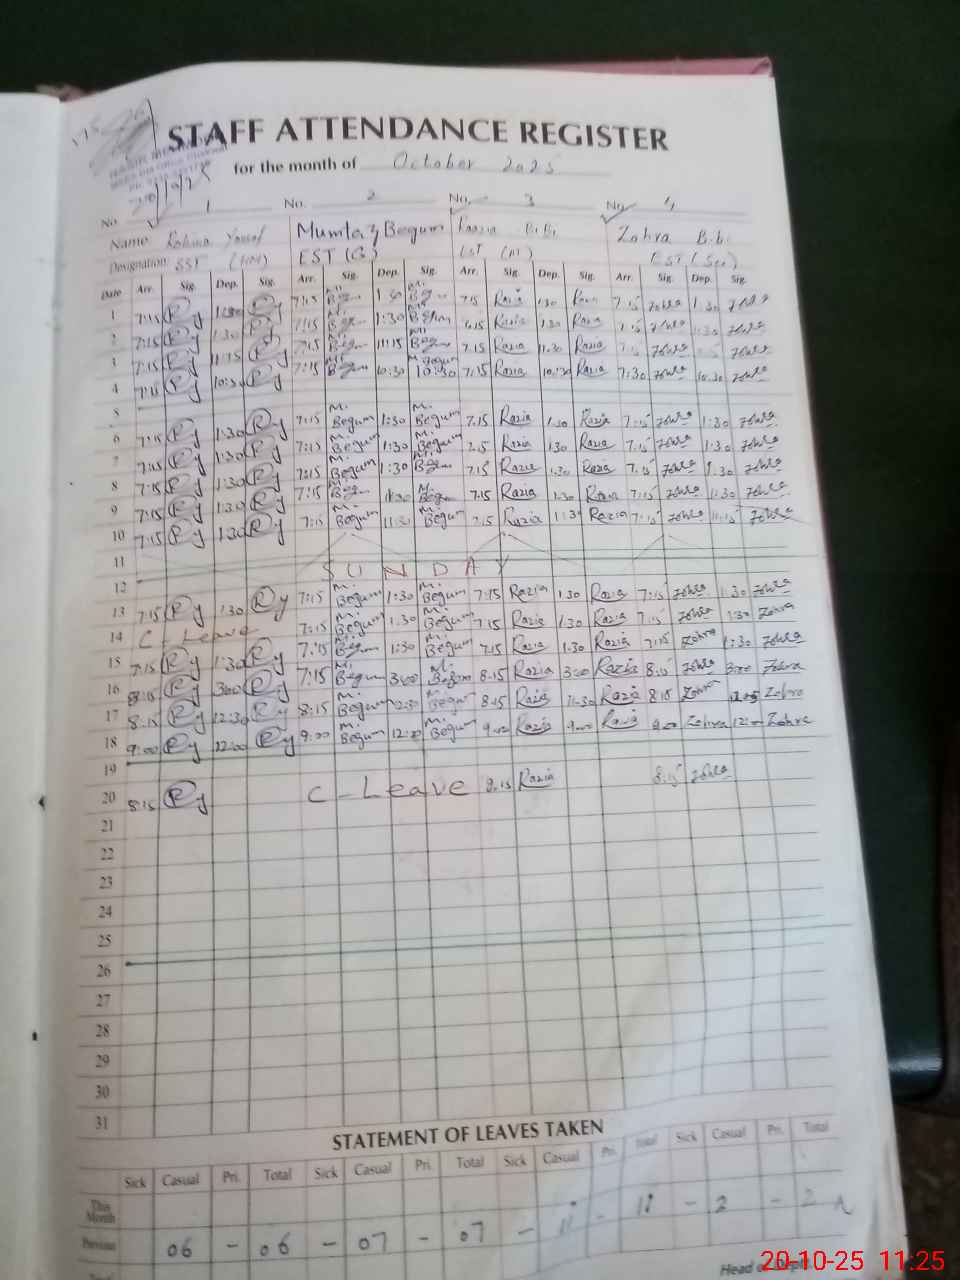 STAFF ATTENDANCE REGISTER
for the month of October 2025
No. 1 No. 2 No. 3 No. 4
Name Rahima Yousaf Mumtaz Begum Razia Bibi Zohra Bibi
Designation SST (HM) EST (G) EST (AT) EST (Sci)
Date Arr. Sig. Dep. Sig. Arr. Sig. Dep. Sig. Arr. Sig. Dep. Sig. Arr. Sig. Dep. Sig.
1 7:15 Ry 1:30 Ry 7:15 M. Begum 1:30 M. Begum 7.15 Razia 1.30 Razia 7.15 Zohra 1:30 Zohra
2 7:15 Ry 1:30 Ry 7:15 M. Begum 1:30 M. Begum 7.15 Razia 1.30 Razia 7.15 Zohra 1:30 Zohra
3 7:15 Ry 11:15 Ry 7:15 M. Begum 11:15 Begum 7.15 Razia 11.30 Razia 7:15 Zohra Zohra
4 7:15 Ry 10:30 Ry 7:15 M. Begum 10:30 M. Begum 10:30 7:15 Razia 10:30 Razia 7:30 Zohra 10.30 Zohra
5
6 7:15 Ry 1:30 Ry 7:15 M. Begum 1:30 M. Begum 7.15 Razia 1.30 Razia 7:15 Zohra 1:30 Zohra
7 7:15 Ry 1:30 Ry 7:15 M. Begum 1:30 M. Begum 7.15 Razia 1.30 Razia 7:15 Zohra 1:30 Zohra
8 7:15 Ry 1:30 Ry 7:15 M. Begum 1:30 M. Begum 7.15 Razia 1.30 Razia 7:15 Zohra 1:30 Zohra
9 7:15 Ry 1:30 Ry 7:15 M. Begum 1:30 M. Begum 7.15 Razia 1:30 Razia 7:15 Zohra 1:30 Zohra
10 7:15 Ry 1:30 Ry 7:15 Begum 11:30 M. Begum 7.15 Razia 11:30 Razia 7:15 Zohra 11:15 Zohra
11
12 SUNDAY
13 7:15 Ry 1:30 Ry 7:15 M. Begum 1:30 M. Begum 7:15 Razia 1.30 Razia 7:15 Zohra 1:30 Zohra
14 C - Leave 7:15 M. Begum 1.30 M. Begum 7.15 Razia 1.30 Razia 7:15 Zohra 1:30 Zohra
15 7:15 Ry 1:30 Ry 7:15 M. Begum 1:30 M. Begum 7.15 Razia 1.30 Razia 7:15 Zohra 1:30 Zohra
16 8:15 Ry 3:00 Ry 7:15 M. Begum 3:00 M. Begum 8.15 Razia 3:00 Razia 8:15 Zohra 3:00 Zohra
17 8:15 Ry 12:30 Ry 8:15 M. Begum 12:30 M. Begum 8.15 Razia 12.30 Razia 8:15 Zohra Zohra
18 9:00 Ry 12:00 Ry 9:00 M. Begum 12:00 M. Begum 9.00 Razia Razia 9.00 Zohra 12:00 Zohra
19
20 8:15 Ry C - Leave 8.15 Razia 8:15 Zohra
21
22
23
24
25
26
27
28
29
30
31
STATEMENT OF LEAVES TAKEN
Sick Casual Pri. Total Sick Casual Pri. Total Sick Casual Pri. Total Sick Casual Pri. Total
This Month
Previous 06 - 06 - 07 - 07 - 11 - 11 - 2 - 2
Head of Deptt.
20-10-25 11:25